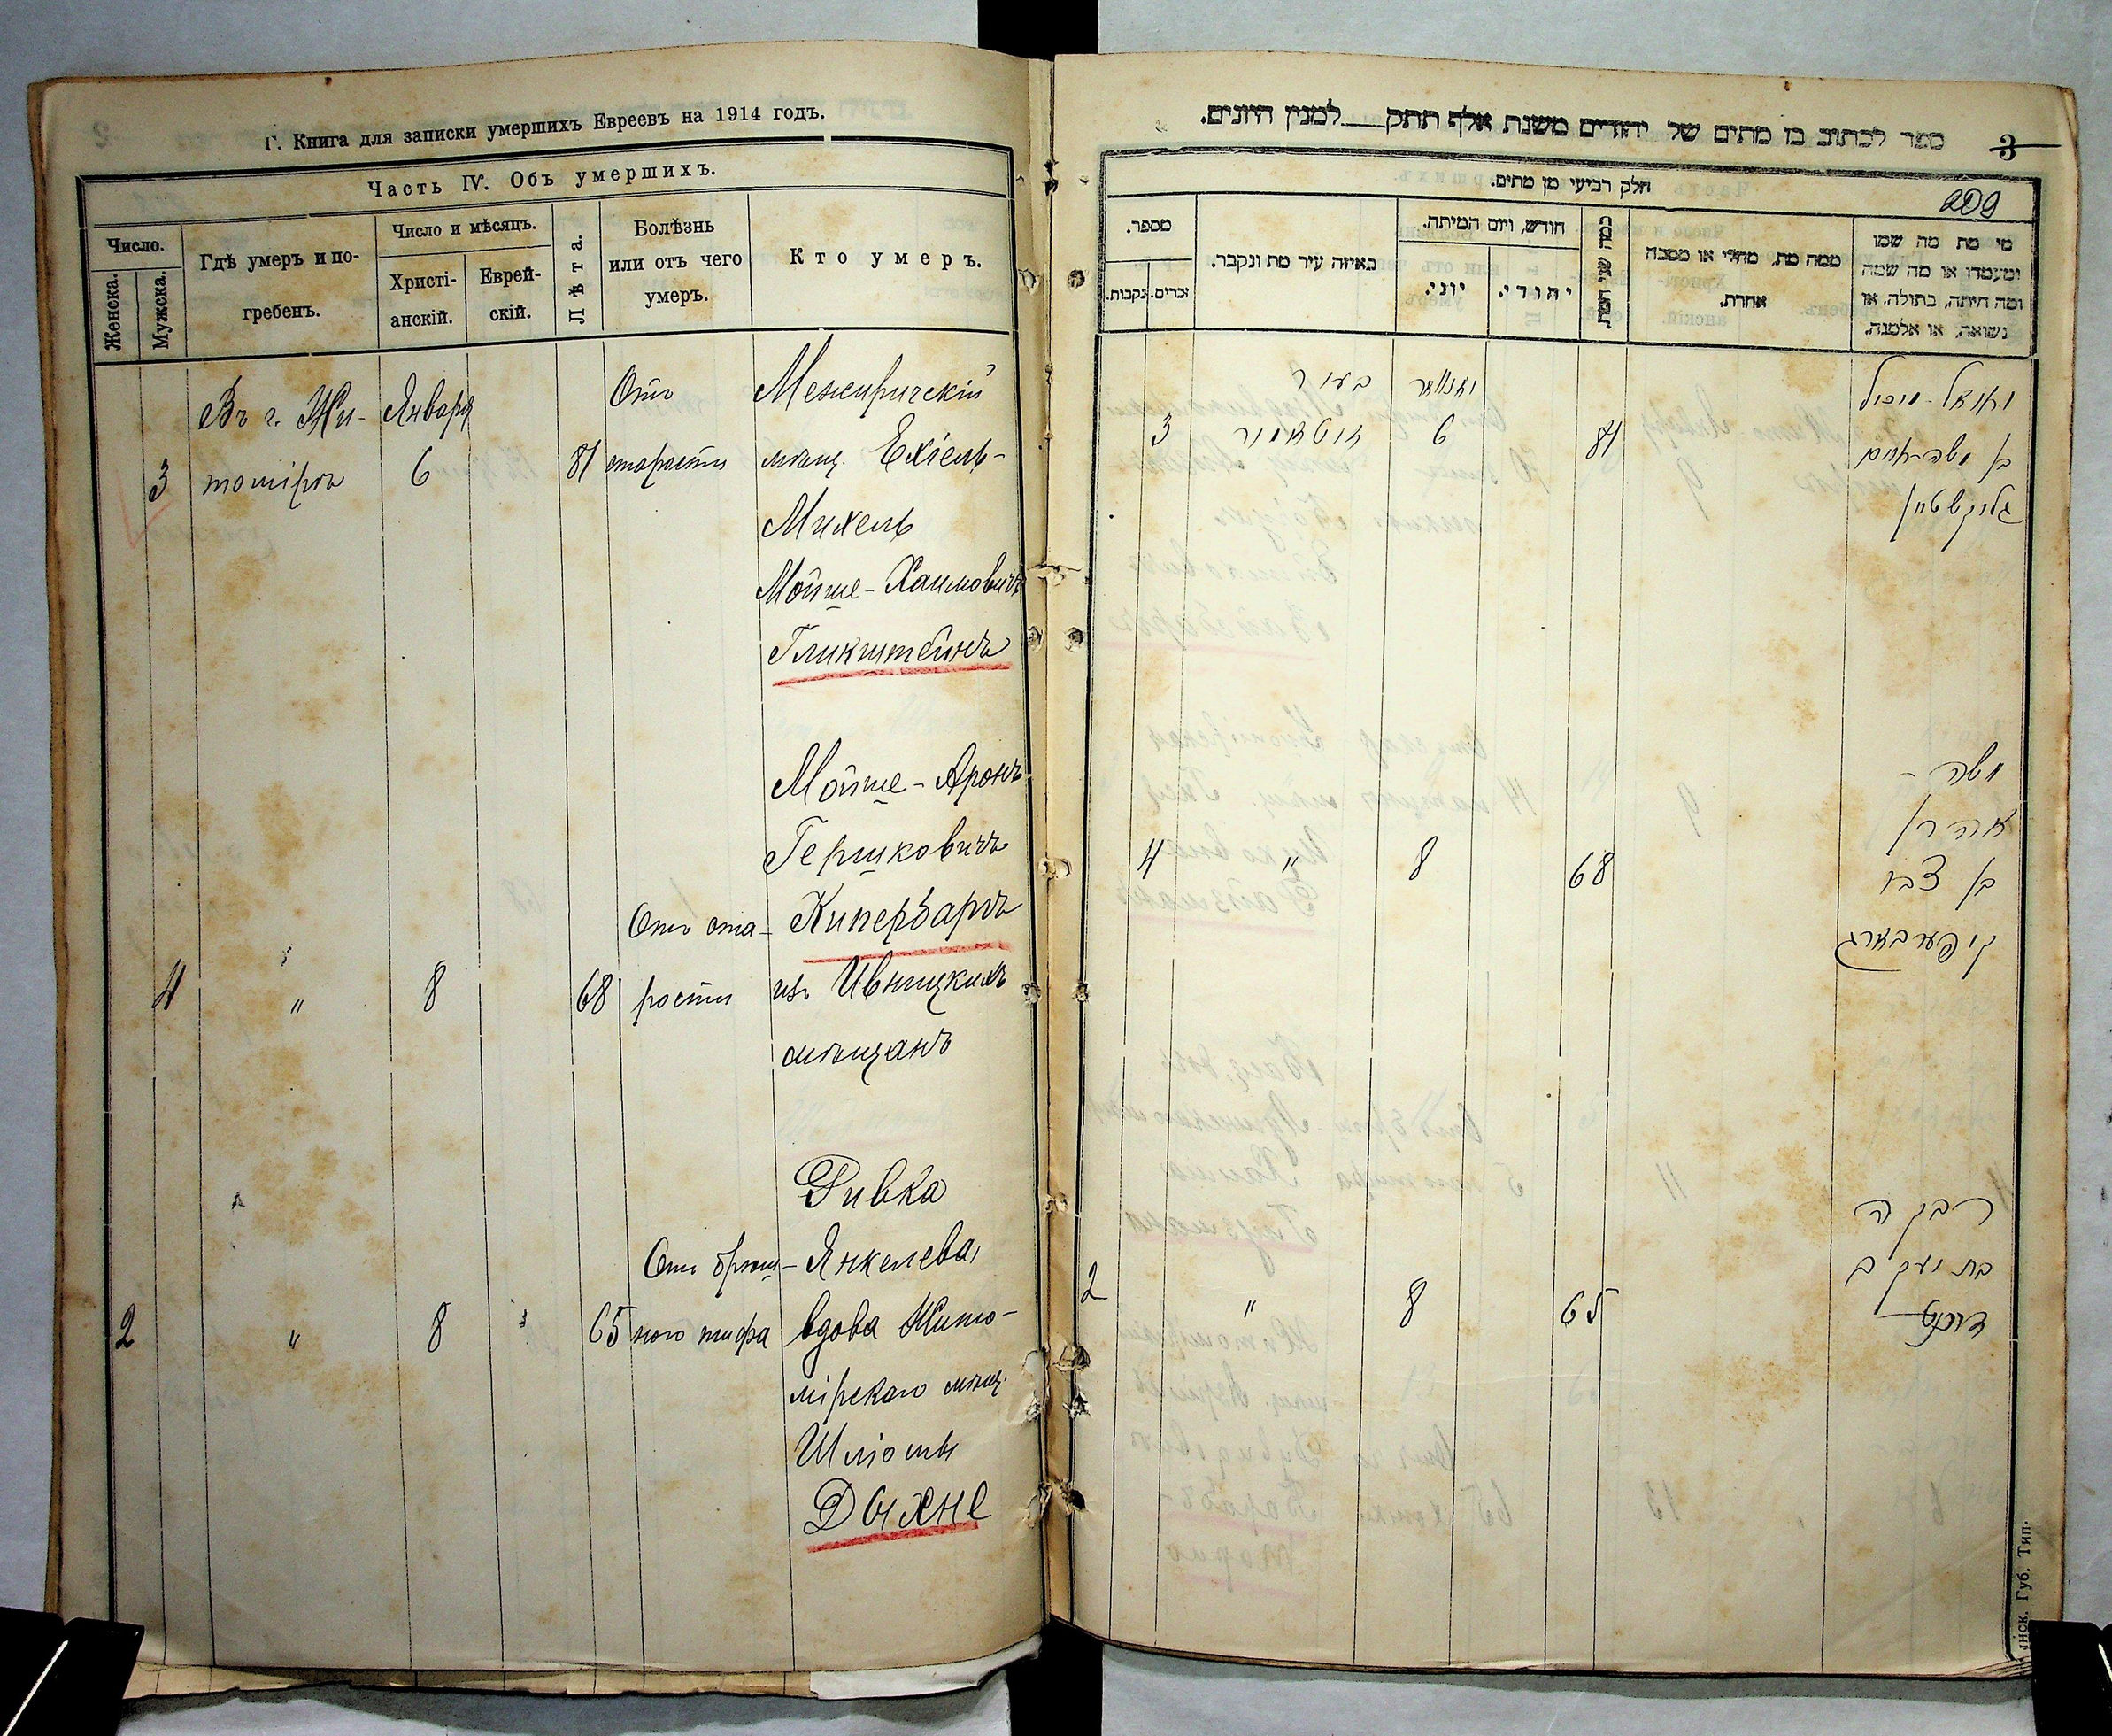 Г. Книга для записки умершихъ Евреевъ на 1914 годъ.
Часть IV. Объ умершихъ.
Число.
Женска.
Мужска.
Гдѣ умеръ и по-
гребенъ.
Число и мѣсяцъ.
Христі-
анскій.
Еврей-
скій.
Лѣта.
Болѣзнь
или отъ чего
умеръ.
Кто умеръ.
Въ г. Жи- Января Отъ Межиричскій
3 томірѣ 6 81 старости мѣщ. Ехіель-
Михель
Мойше-Хаимовичъ
Гликштейнъ
Мойше-Аронъ
Гершковичъ
Отъ ста- Киперваргъ
4 " 8 68 рости изъ Ивницкихъ
мѣщанъ
Ривка
Отъ брюш- Янкелева,
2 " 8 65 ного тифа вдова Жито-
мірскаго мѣщ.
Шліомы
Дыхне
ספר לכתוב בו מתים של יהודים משנת אלף תתק למנין היונים.
3
209
חלק רביעי מן מתים.
מספר.
זכרים.
נקבות.
באיזה עיר מת ונקבר.
חודש, ויום המיתה.
יוני.
יהודי.
כמה שני המת.
ממה מת, מחלי או מסבה
אחרת.
מי מת מה שמו
ומעמדו או מה שמה
ומה היתה, בתולה, או
נשואה, או אלמנה.
בעיר יאנואר יחיאל-מיכל
3 זיטאמיר 6 81 בן משה-חיים
גליקשטיין
משה-
אהרן
4 " 8 68 בן צבי
קיפערבארג
רבקה
בת יעקב
2 " 8 65
нск. Губ. Тип.